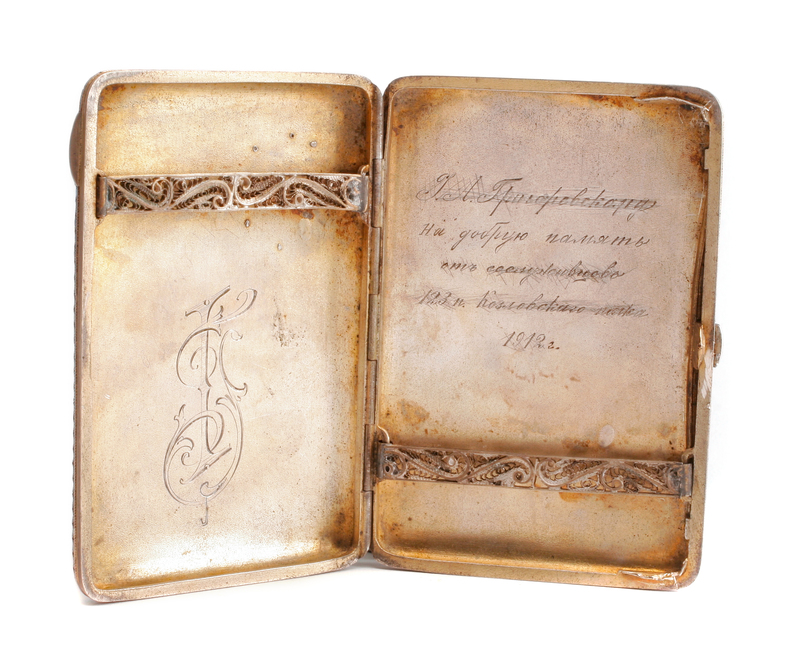 Григоровскому
на добрую память
отъ сослуживцевъ
123 п. Козловскаго полка
1912 г.